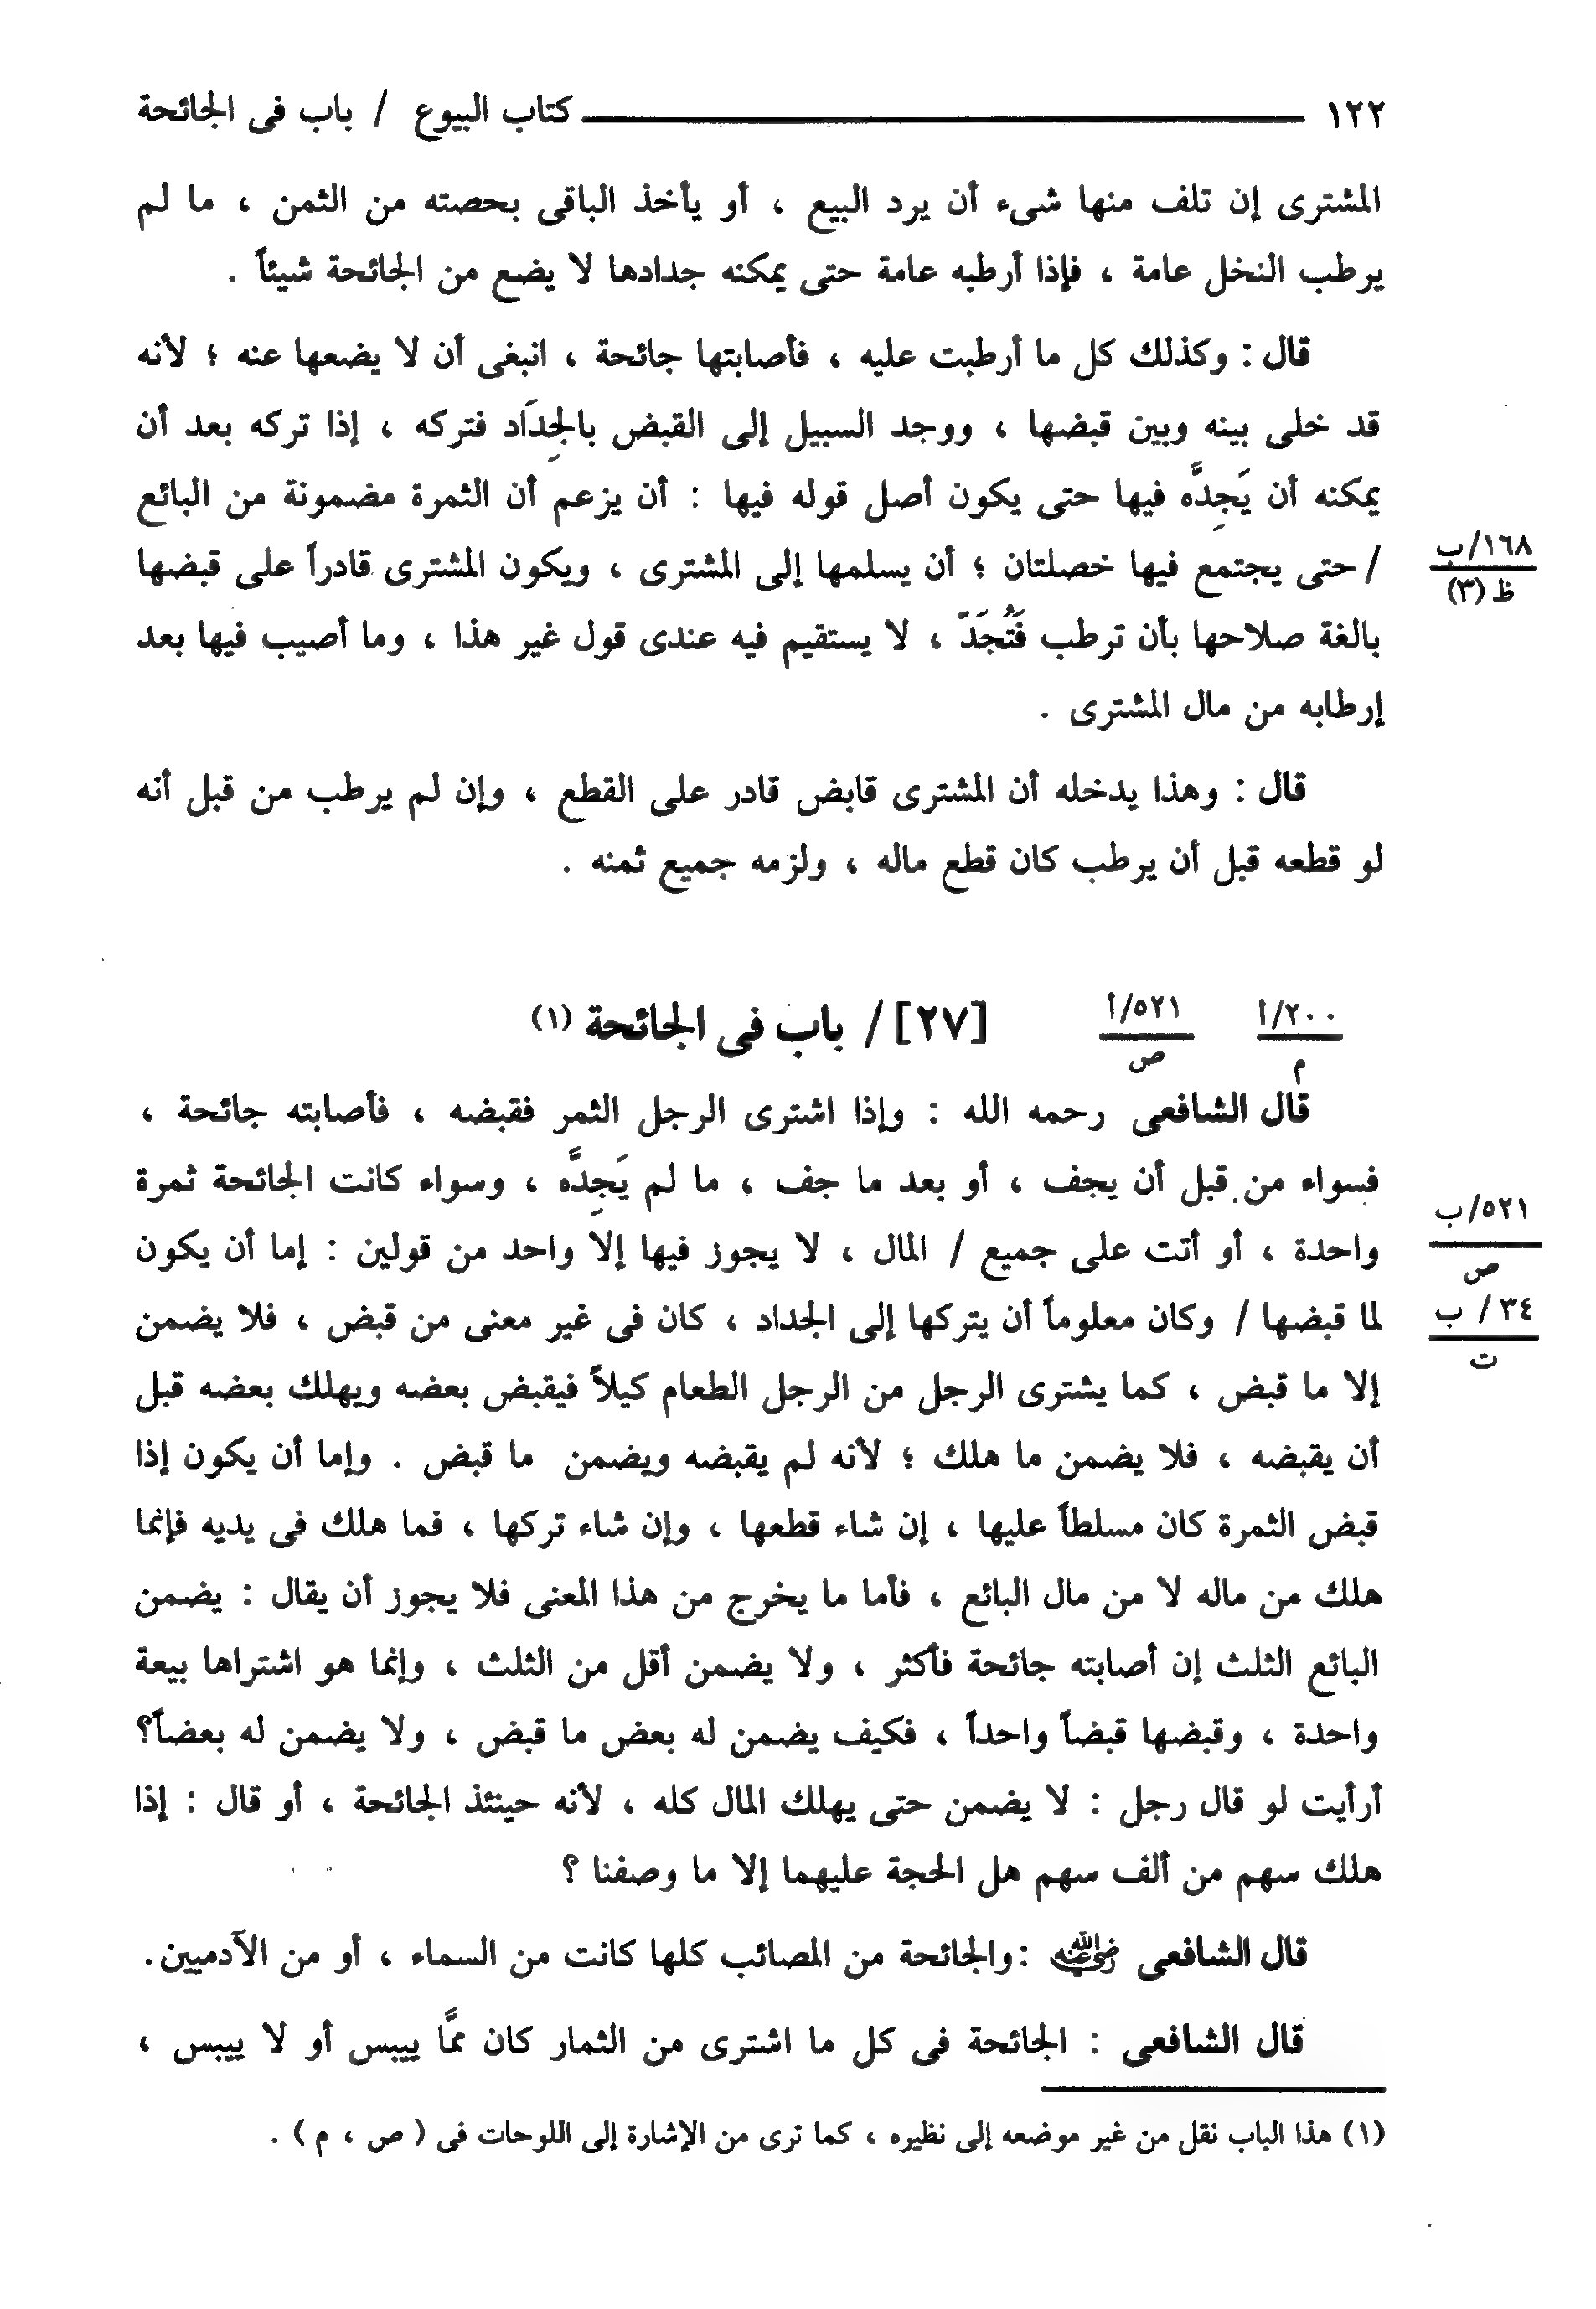 ١٢٢ كتاب البيوع / باب فى الجائحة
المشترى إن تلف منها شىء أن يرد البيع ، أو يأخذ الباقى بحصته من الثمن ، ما لم
يرطب النخل عامة ، فإذا أرطبه عامة حتى يمكنه جدادها لا يضع من الجائحة شيئاً .
قال : وكذلك كل ما أرطبت عليه ، فأصابتها جائحة ، انبغى أن لا يضعها عنه ؛ لأنه
قد خلى بينه وبين قبضها ، ووجد السبيل إلى القبض بالجِدَاد فتركه ، إذا تركه بعد أن
يمكنه أن يَجِدَّه فيها حتى يكون أصل قوله فيها : أن يزعم أن الثمرة مضمونة من البائع
/ حتى يجتمع فيها خصلتان ؛ أن يسلمها إلى المشترى ، ويكون المشترى قادراً على قبضها
١٦٨/ب
ظ (٣)
بالغة صلاحها بأن ترطب فَتُجَدّ ، لا يستقيم فيه عندى قول غير هذا ، وما أصيب فيها بعد
إرطابه من مال المشترى .
قال : وهذا يدخله أن المشترى قابض قادر على القطع ، وإن لم يرطب من قبل أنه
لو قطعه قبل أن يرطب كان قطع ماله ، ولزمه جميع ثمنه .
٢٠٠/أ
م
٥٢١/أ
ص
[٢٧] / باب فى الجائحة (١)
قال الشافعى رحمه الله : وإذا اشترى الرجل الثمر فقبضه ، فأصابته جائحة ،
فسواء من قبل أن يجف ، أو بعد ما جف ، ما لم يَجِدَّه ، وسواء كانت الجائحة ثمرة
٥٢١/ب
ص
واحدة ، أو أتت على جميع / المال ، لا يجوز فيها إلا واحد من قولين : إما أن يكون
لما قبضها / وكان معلوماً أن يتركها إلى الجداد ، كان فى غير معنى من قبض ، فلا يضمن
٣٤ / ب
ت
إلا ما قبض ، كما يشترى الرجل من الرجل الطعام كيلاً فيقبض بعضه ويهلك بعضه قبل
أن يقبضه ، فلا يضمن ما هلك ؛ لأنه لم يقبضه ويضمن ما قبض . وإما أن يكون إذا
قبض الثمرة كان مسلطاً عليها ، إن شاء قطعها ، وإن شاء تركها ، فما هلك فى يديه فإنما
هلك من ماله لا من مال البائع ، فأما ما يخرج من هذا المعنى فلا يجوز أن يقال : يضمن
البائع الثلث إن أصابته جائحة فأكثر ، ولا يضمن أقل من الثلث ، وإنما هو اشتراها بيعة
واحدة ، وقبضها قبضاً واحداً ، فكيف يضمن له بعض ما قبض ، ولا يضمن له بعضاً؟
أرأيت لو قال رجل : لا يضمن حتى يهلك المال كله ، لأنه حينئذ الجائحة ، أو قال : إذا
هلك سهم من ألف سهم هل الحجة عليهما إلا ما وصفنا ؟
قال الشافعى رضي الله عنه : والجائحة من المصائب كلها كانت من السماء ، أو من الآدميين.
قال الشافعى : الجائحة فى كل ما اشترى من الثمار كان ممَّا ييبس أو لا ييبس ،
(١) هذا الباب نقل من غير موضعه إلى نظيره ، كما ترى من الإشارة إلى اللوحات فى ( ص ، م ) .